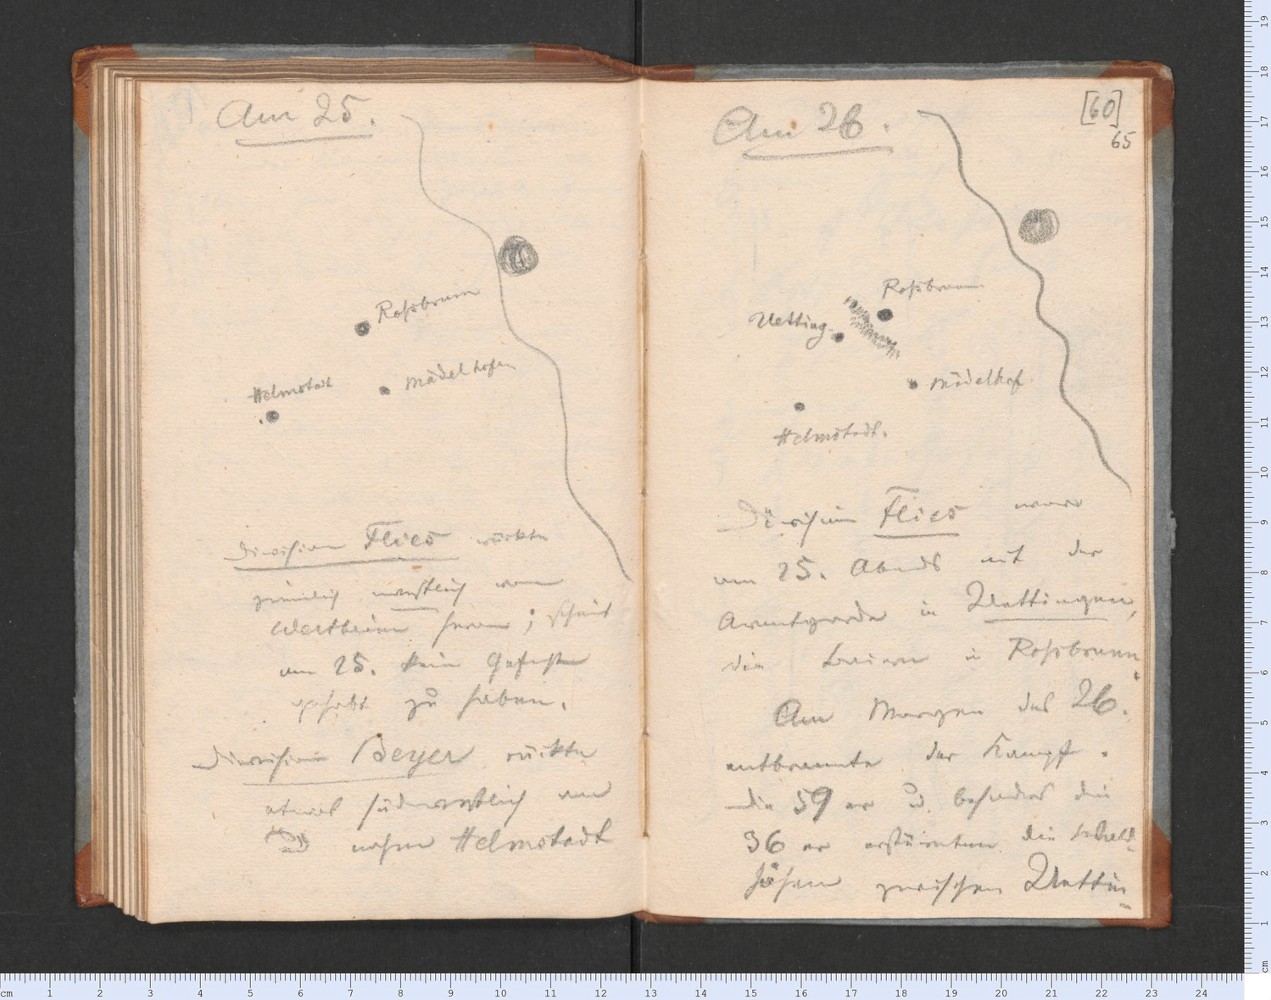 Am 25.
Roßbrunn
Mädelhofen
Helmstadt
Division Flies rückte
ziemlich westlich von
Wertheim heran; scheint
am 25. kein Gefecht
gehabt zu haben.
Division Beyer rückte
etwas südwestlich an
und nahm Helmstadt
[60]
65
Am 26.
Roßbrunn
Uetting.
Mädelhof
Helmstadt.
Division Flies war
am 25. Abends mit der
Avantgarde in Uettingen,
die Baiern in Roßbrunn.
Am Morgen des 26.
entbrannte der Kampf.
die 59 er u. besonders die
36 er erstürmten die Wald-
höhen zwischen Uettin-